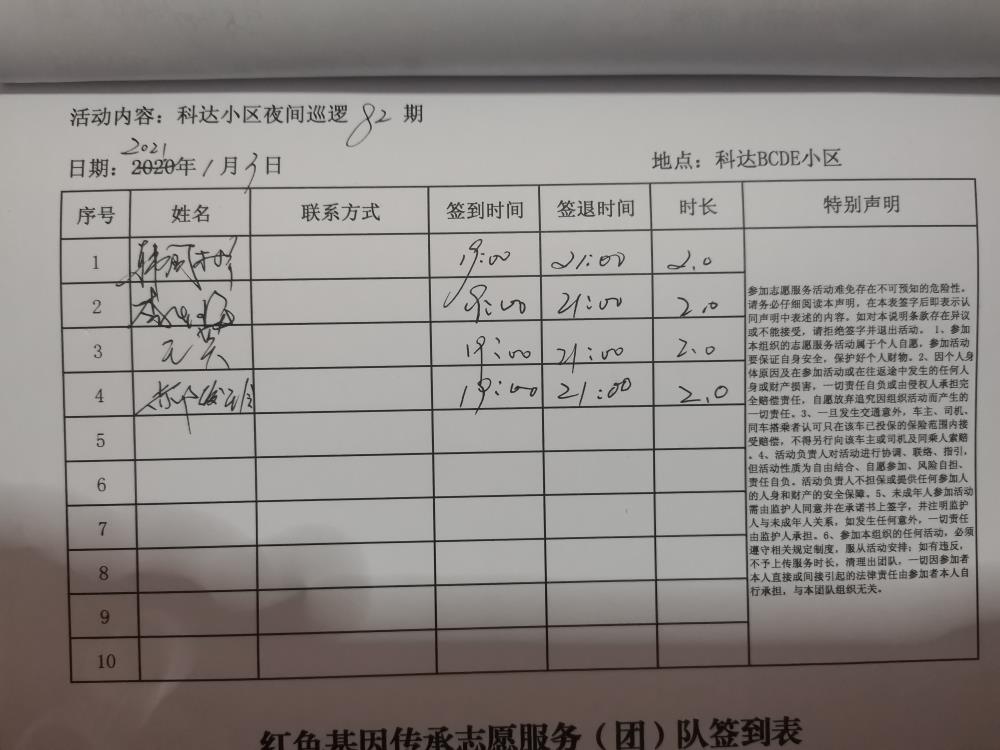 活动内容：科达小区夜间巡逻82期
2021
日期：2020年1月3日
地点：科达BCDE小区
序号 姓名 联系方式 签到时间 签退时间 时长 特别声明
1 19:00 21:00 2.0
2 19:00 21:00 2.0
3 19:00 21:00 2.0
4 19:00 21:00 2.0
5
6
7
8
9
10
参加志愿服务活动难免存在不可预知的危险性。
请务必仔细阅读本声明，在本表签字后即表示认
同声明中表述的内容。如对本说明条款存在异议
或不能接受，请拒绝签字并退出活动。 1、参加
本组织的志愿服务活动属于个人自愿，参加活动
要保证自身安全，保护好个人财物。2、因个人身
体原因及在参加活动或在往返途中发生的任何人
身或财产损害，一切责任自负或由侵权人承担完
全赔偿责任，自愿放弃追究因组织活动而产生的
一切责任。3、一旦发生交通意外，车主、司机、
同车搭乘者认可只在该车已投保的保险范围内接
受赔偿，不得另行向该车主或司机及同乘人索赔
。4、活动负责人对活动进行协调、联络、指引，
但活动性质为自由结合、自愿参加、风险自担、
责任自负。活动负责人不担保或提供任何参加人
的人身和财产的安全保障。5、未成年人参加活动
需由监护人同意并在承诺书上签字，并注明监护
人与未成年人关系，如发生任何意外，一切责任
由监护人承担。6、参加本组织的任何活动，必须
遵守相关规定制度，服从活动安排；如有违反，
不予上传服务时长，清理出团队，一切因参加者
本人直接或间接引起的法律责任由参加者本人自
行承担，与本团队组织无关。
红色基因传承志愿服务（团）队签到表